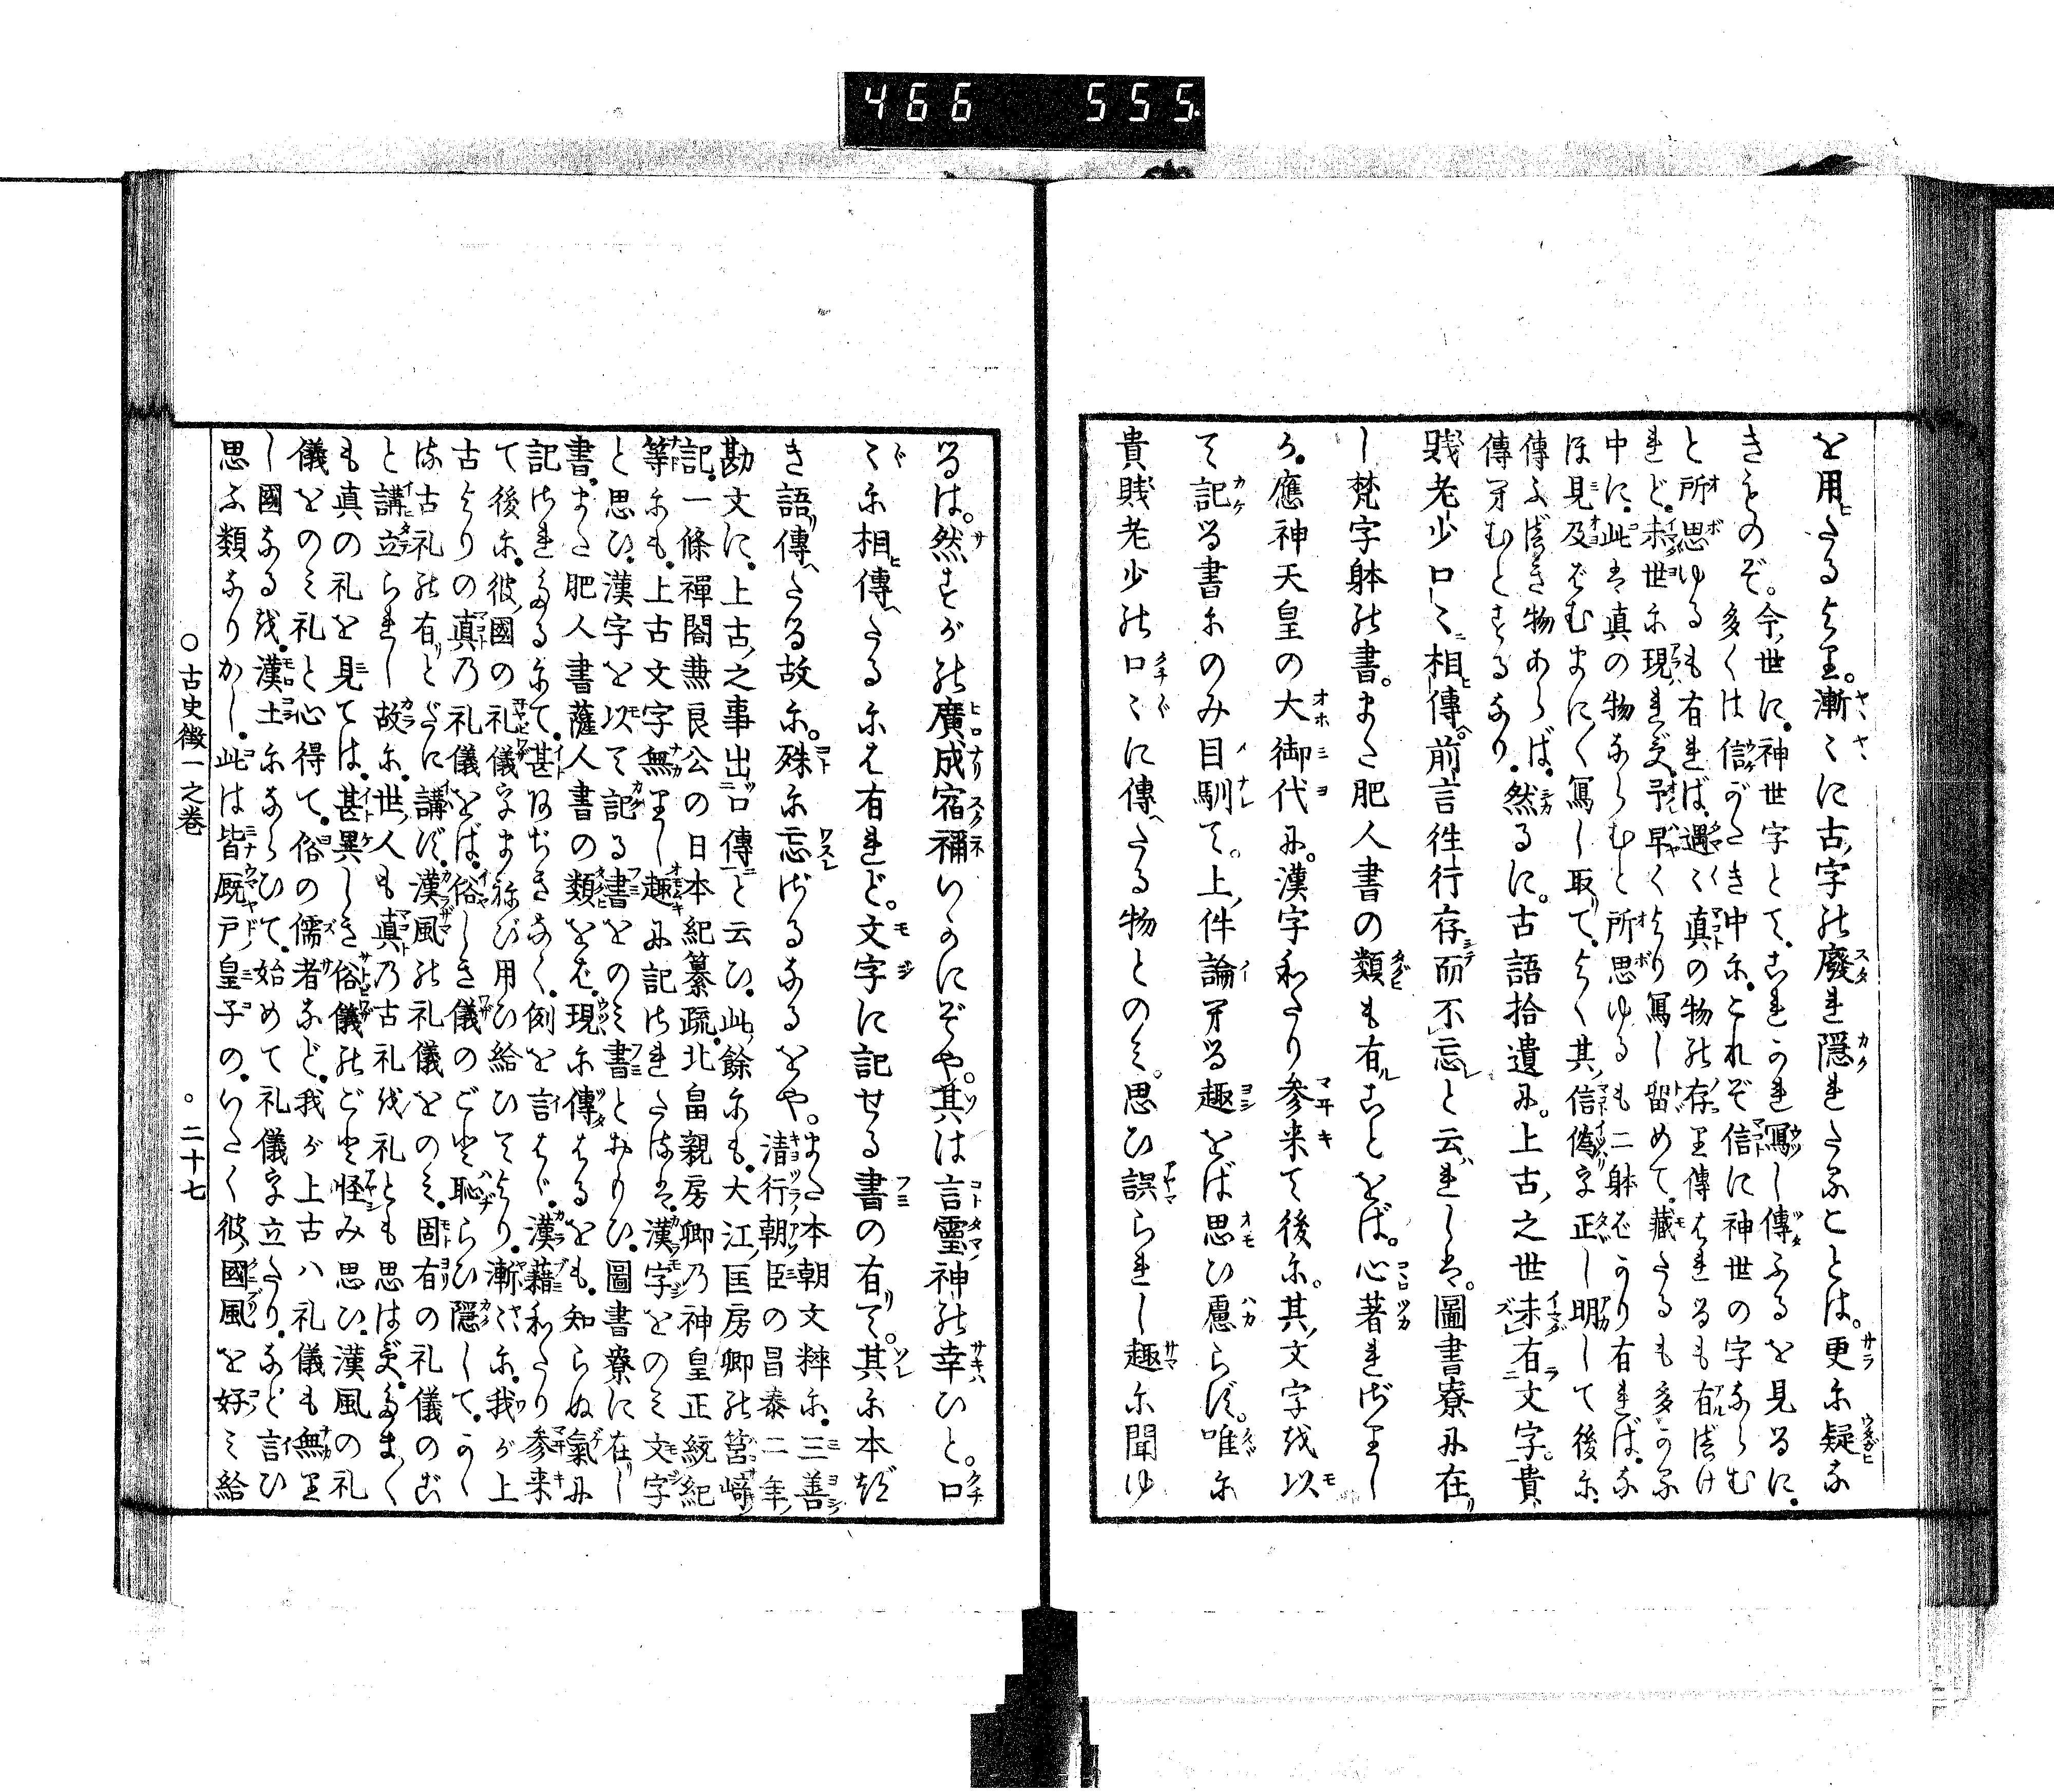 466 555.
を用たるより。漸々に古字の廢れ隱れたることは。更に疑な
きものぞ。今世に。神世字とて。これかれ寫し傳ふるを見るに。
多くは信がたき中に。これぞ信に神世の字ならむ
と所思ゆるも有れば。遇々真の物の存り傳はれるも有べけ
れど。未世に現れず。予早くより寫し留めて。藏たるも多かる
中に。此は真の物ならむと所思ゆるも二躰ばかり有れば。な
ほ見及ばむまにく寫し取て。よく其信偽を正し明して後に。
傳ふべき物あらば。
傳ヘむとするなり。然るに。古語拾遺に。上古之世未有文字。貴
賤老少口々相傳。前言往行存而不忘と云れしは。圖書寮に在
し梵字躰の書。また肥人書の類も有ことをば。心著れざりし
か。應神天皇の大御代に。漢字わたり参来て後に。其文字を以
て記る書にのみ目馴て。上件論ヘる趣をば思ひ慮らず。唯に
貴賤老少の口々に傳たる物とのみ。思ひ誤られし趣に聞ゆ
るは。然すがの廣成宿禰いかにぞや。其は言靈神の幸ひと。口
々に相傳たるには有れど。文字に記せる書の有て。其に本づ
き語傳たる故に。殊に忘ざるなるをや。また本朝文粹に。三善
清行朝臣の昌泰二年
勘文に。上古之事出口傳と云ひ。此餘にも。大江匡房卿の筥﨑
記。一條禪閤兼良公の日本紀纂疏。北畠親房卿乃神皇正統紀
等にも。上古文字無りし趣に記されたるは。漢字をのみ文字
と思ひ。漢字を以て記る書をのみ書とおもひ。圖書寮に在し
書。また肥人書薩人書の類をば。現に傳はるをも。知らぬ氣に
記されたるにて。甚あぢきなく。例を言はゞ。漢藉わたり参来
て後に。彼國の礼儀字まねび用ひ給ひてより。漸々に。我が上
古よりの真乃礼儀をば。俗しき儀のごと恥らひ隱して。かし
こ古礼の有とだに講ず。漢風の礼儀をのみ。固有の礼儀のごと
と講立られし故に。世人も真乃古礼を礼とも思はず。たまく
も真の礼を見ては。甚異しき俗儀のごと怪み思ひ。漢風の礼
儀をのみ礼と心得て。俗の儒者など。我が上古ハ礼儀も無り
し國なるを。漢土にならひて。始めて礼儀字立たり。など言ひ
思ふ類なりかし。此は皆厩戸皇子の。いたく彼國風を好み給
○古史徴一之巻 ○二十七